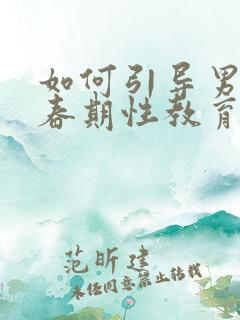 如何引导男
春期性教育
范昕建
未经同意禁止转载